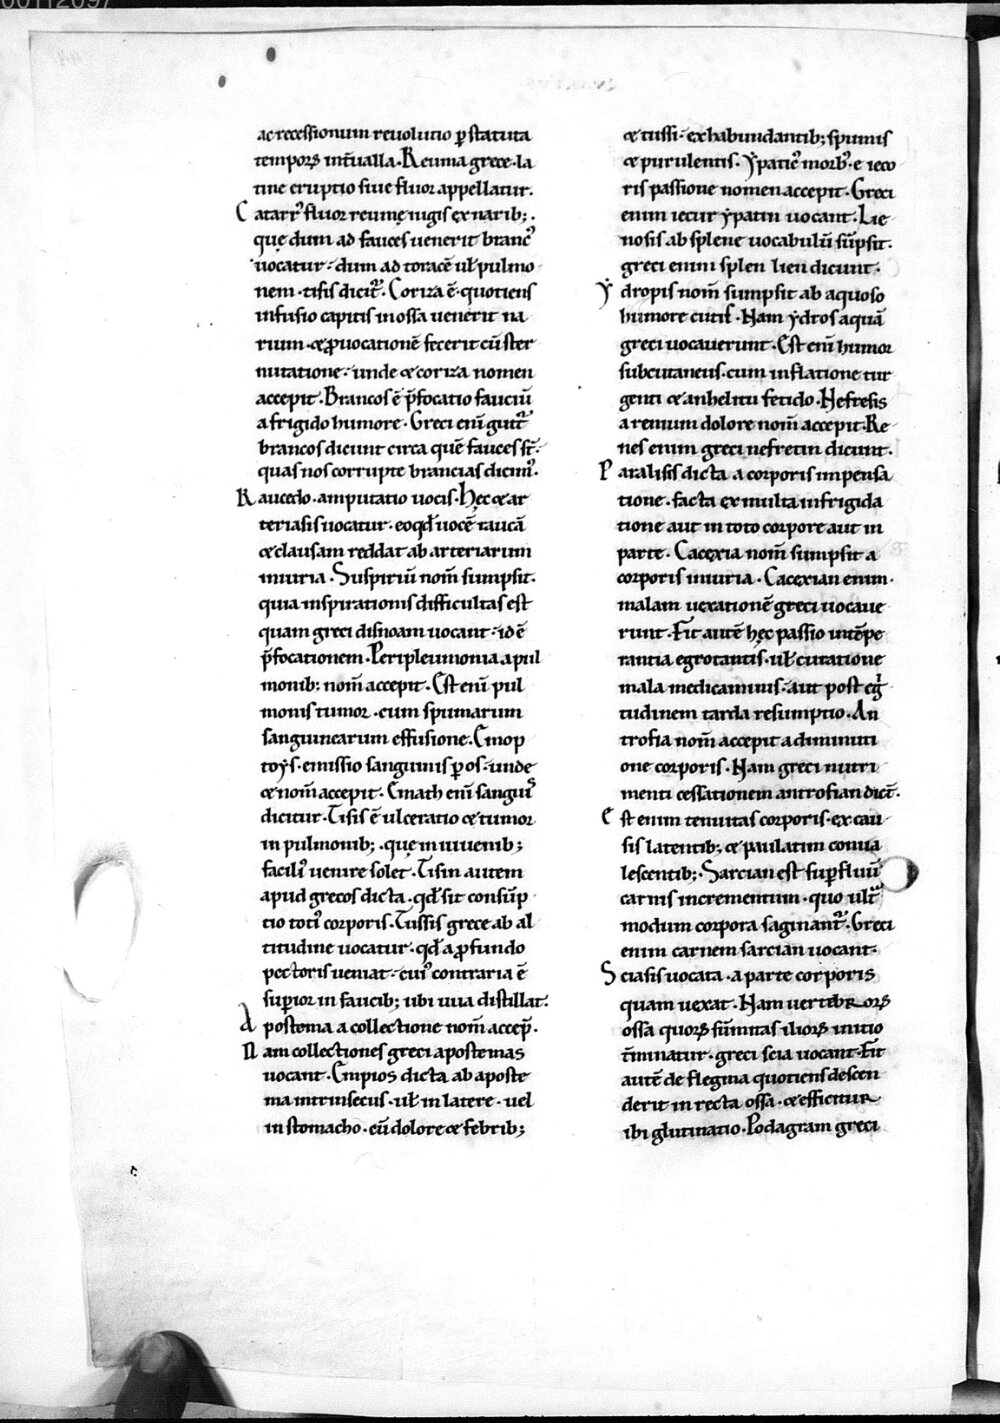 00112097
ac recessionum reuolutio ꝑ statuta
temporꝝ int̄ualla. Reuma grece. la
tine eruptio siue fluor appellatur.
Catarrꝰ fluor reumę iugis ex narib;.
quę dum ad fauces uenerit brancꝰ
uocatur. dum ad toracē ul̵ pulmo
nem. tisis dicit᷑. Coriza ē. quotiens
infusio capitis in ossa uenerit na
rium. & ꝓuocationē fecerit cū ster
nutatione. unde & coriza nomen
accepit. Brancos ē p̄focatio fauciū
a frigido humore. Greci eni᷑ gutt᷑
brancos dicunt circa quē fauces st̄.
quas nos corrupte brancias dicimꝰ.
Raucedo. amputatio uocis. Hęc & ar
teriasis uocatur. eo qđ uocē raucā
& clausam reddat ab arteriarum
iniuria. Suspiriū nom̄ sumpsit.
quia inspirationis difficultas est
quam greci disnoam uocant. id ē
p̄focationem. Peripleumonia a pul
monib; nom̄ accepit. Est eni᷑ pul
monis tumor. cum spumarum
sanguinearum effusione. Emop
toẏs. emissio sanguinis ꝑ os. unde
& nom̄ accepit. Emath eni᷑ sanguis
dicitur. Tisis ē ulceratio & tumor
in pulmonib;. quę in iuuenib;
faciliꝰ uenire solet. Tisin autem
apud grecos dicta. qđ sit consūp
tio totiꝰ corporis. Tussis grece ab al
titudine uocatur. qđ a ꝓfundo
pectoris ueniat. cuiꝰ contraria ē
suꝑior in faucib; ubi uua distillat.
Apostema a collectione nom̄ accep̄.
Nam collectiones greci apostemas
uocant. Empios dicta ab aposte
ma intrinsecus. ul̵ in latere. uel
in stomacho. cū dolore & febrib;
& tussi. & habundantib; spumis
& purulentis. Ẏpaticꝰ morbꝰ. e ieco
ris passione nomen accepit. Greci
enim iecur ẏpatin uocant. Lie
nosis ab splene uocabulū sūpsit.
greci enim splen lien dicunt.
Ẏdropis nom̄ sumpsit ab aquoso
humore cutis. Nam ẏdros aquā
greci uocauerunt. Est eni᷑ humor
subcutaneus. cum inflatione tur
genti & anhelitu fetido. Nefresis
a renium dolore nom̄ accepit. Re
nes enim greci nefretin dicunt.
Paralisis dicta a corporis impensa
tione. facta ex multa infrigida
tione aut in toto corpore aut in
parte. Cacexia nom̄ sumpsit a
corporis iniuria. Cacexian enim.
malam uexationē greci uocaue
runt. Fit autē hęc passio intēpe
rantia egrotantis. ul̵ curatione
mala medicaminis. aut post eg̓
tudinem tarda resumptio. An
trofia nom̄ accepit a diminuti
one corporis. Nam greci nutri
menti cessationem antrofian dict̄.
Est enim tenuitas corporis. ex cau
sis latentib; & paulatim conua
lescentib;. Sarcian est suꝑfluū
carnis incrementum. quo ult᷑
modum corpora saginant᷑. Greci
enim carnem sarcian uocant.
Sciasis uocata. a parte corporis
quam uexat. Nam uertebrorꝝ
ossa quorꝝ sūmitas iliorꝝ initio
t̄minatur. greci scia uocant. Fit
autē de flegma quotiens descen
derit in recta ossa. & efficitur
ibi glutinatio. Podagram greci